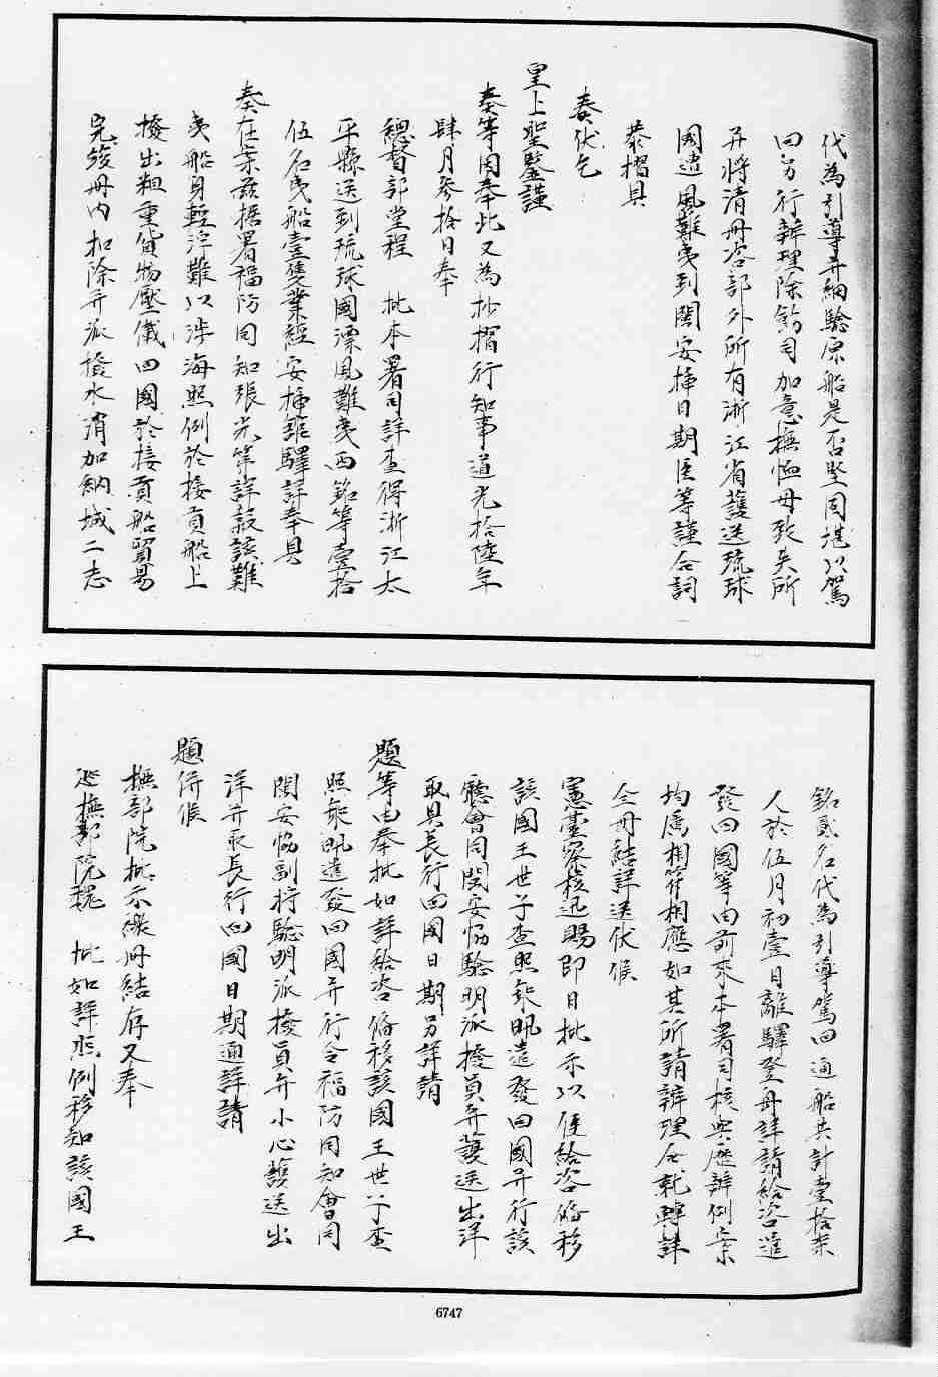 代為引導并納驗原船是否堅固堪以駕
回另行辦理除飭司加意撫恤毋致失所
并將清冊咨部外所有浙江省護送琉球
國遭風難夷到閩安插日期臣等謹合詞
恭摺具
奏伏乞
皇上聖鑒謹
奏等因奉此又為抄摺行知事道光拾陸年
肆月叁拾日奉
總督部堂程 批本署司詳查得浙江太
平縣送到琉球國漂風難夷西銘等壹拾
伍名夷船壹隻業經安插館驛詳奉具
奏在案茲據署福防同知張光第詳報該難
夷船身輕浮難以涉海照例於接貢船上
撥出粗重貨物壓儀回國於接貢船貿易
完竣冊內扣除并派撥水清加納城二志
銘貳名代為引導駕回通船共計壹拾柒
人於伍月初壹日離驛登舟詳請給咨遣
發回國等由前來本署司核與歷辦例案
均屬相符相應如其所請辦理合就轉詳
仝冊結詳送伏候
憲臺察核迅賜即日批示以便給咨俻移
該國王世子查照知照遣發回國并行該
廳會同閩安協驗明派撥員弁護送出洋
取具長行回國日期另詳請
題等由奉批如詳給咨俻移該國王世子查
照知照遣發回國并行令福防同知會同
閩安協副將驗明派撥員弁小心護送出
洋并取長行回國日期通詳請
題併候
撫部院批示繳冊結存又奉
巡撫部院魏 批如詳照例移知該國王
6747